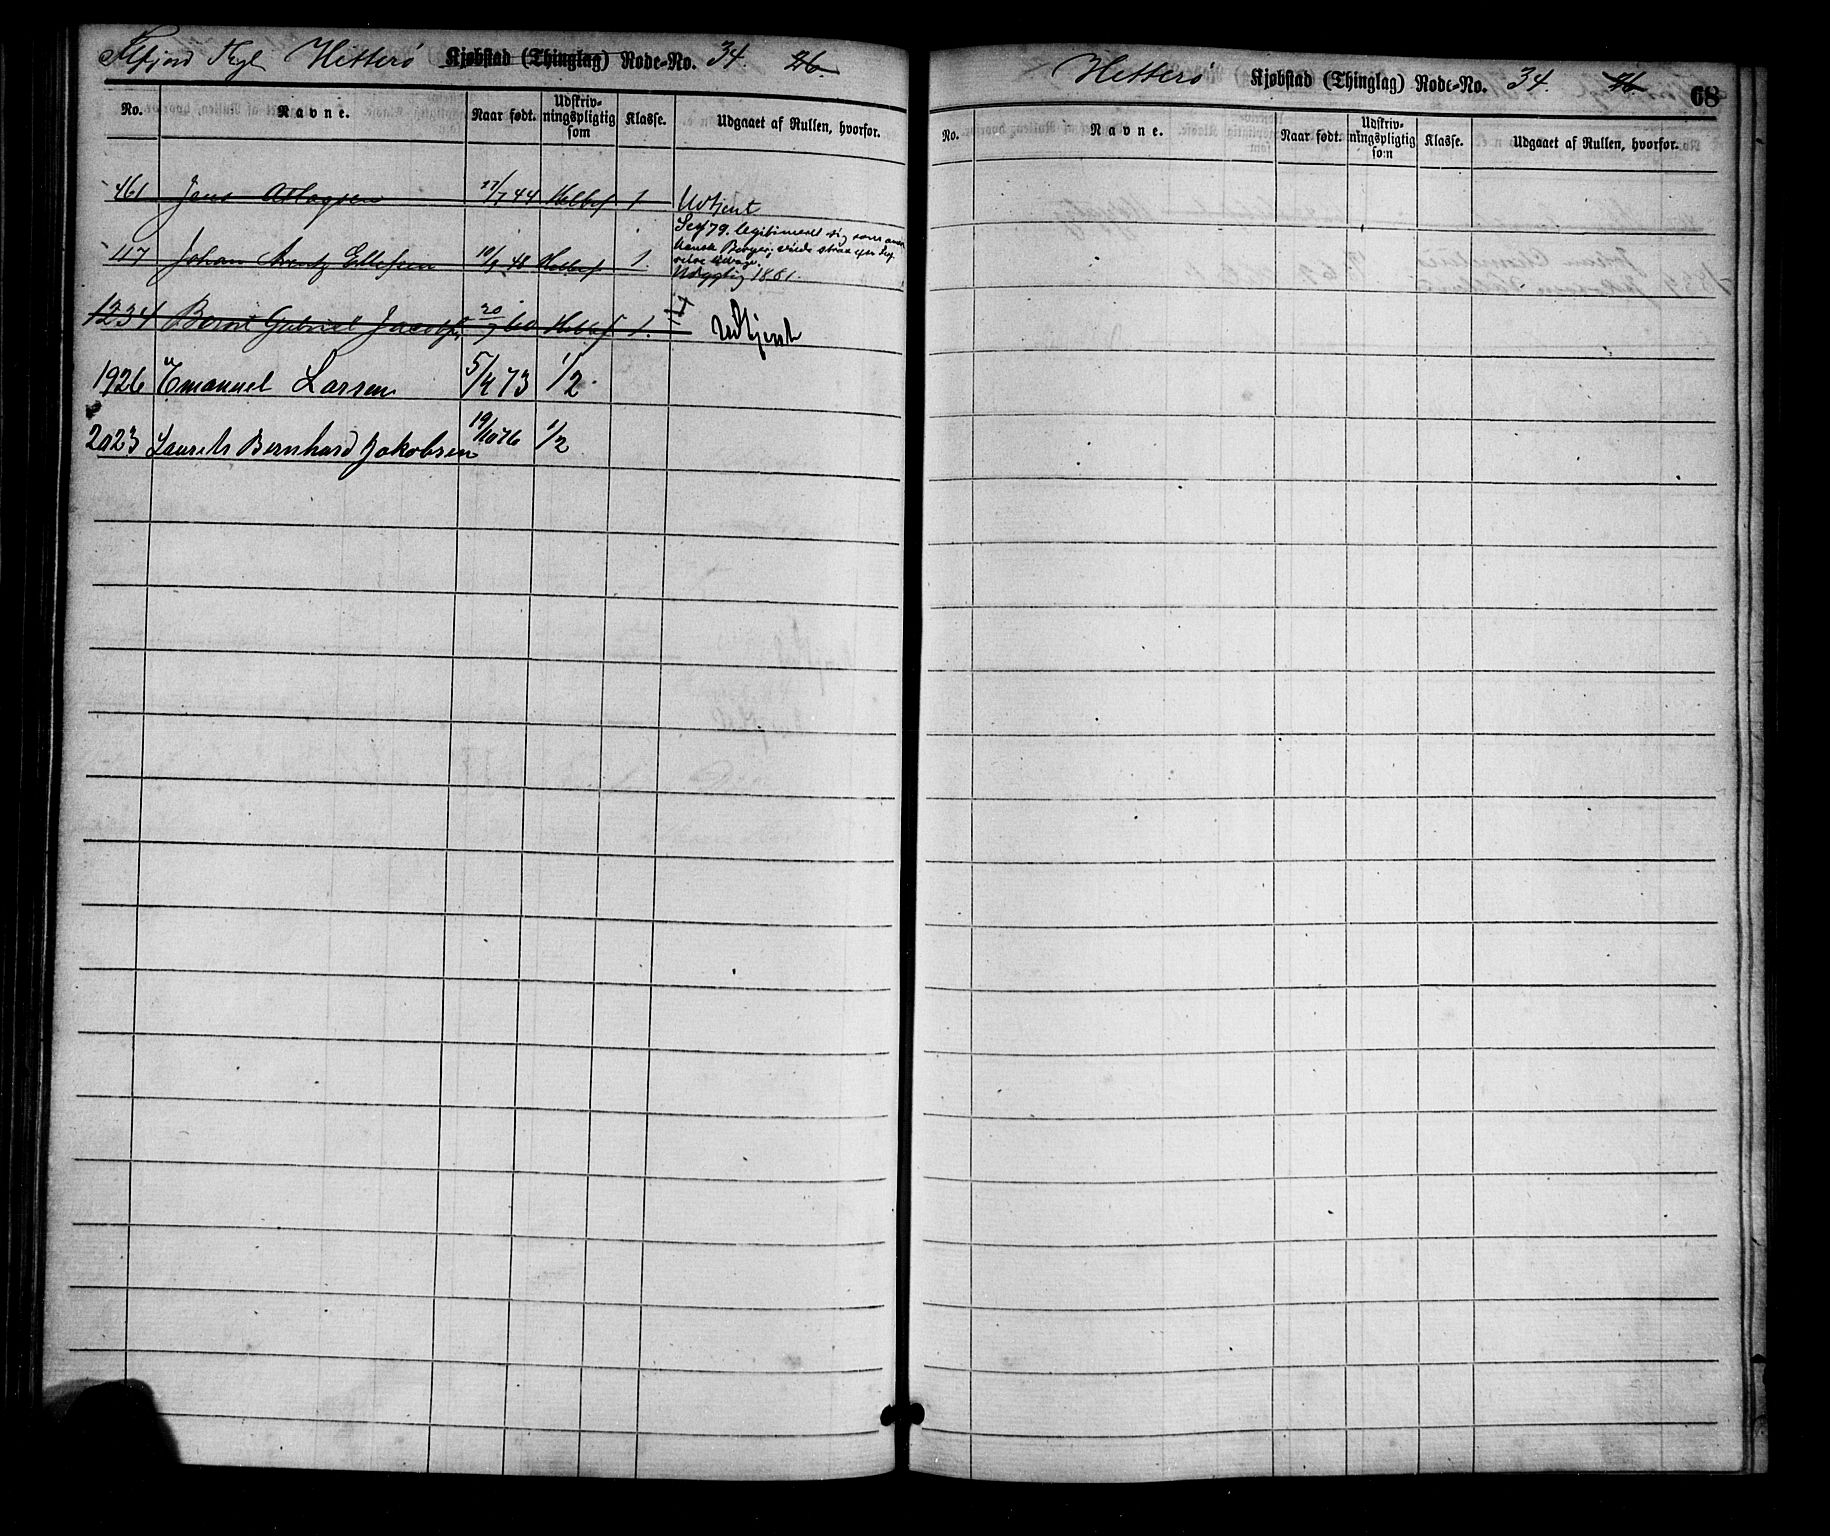 Hitterø Kjøbstad (Thinglag) Rode-No. 34. 26.
No. Navne. Naar født. Udskriv-ningspligtig som Klasse. Udgaaet af Rullen, hvorfor.
461 Jens Aslagsen 27/7 44 Helbef 1 Udtjent
Sed 79. legitimeret sig som ameri
117 Johan Arentz Ellefsen 10/9 48 Helbef 1.
Udygtig 1881.
1234 Bernt Gabriel Jacobs. 20/7 60 Helbef 1. Udtjent
1926 Emanuel Larsen 5/4 73 1/2
2023 Laurits Bernhard Jakobsen 19/10 76 1/2
Hitterø Kjøbstad (Thinglag) Rode-No. 34. 26
68
No. Navne. Naar født. Udskriv-ningspligtig som Klasse. Udgaaet af Rullen, hvorfor.